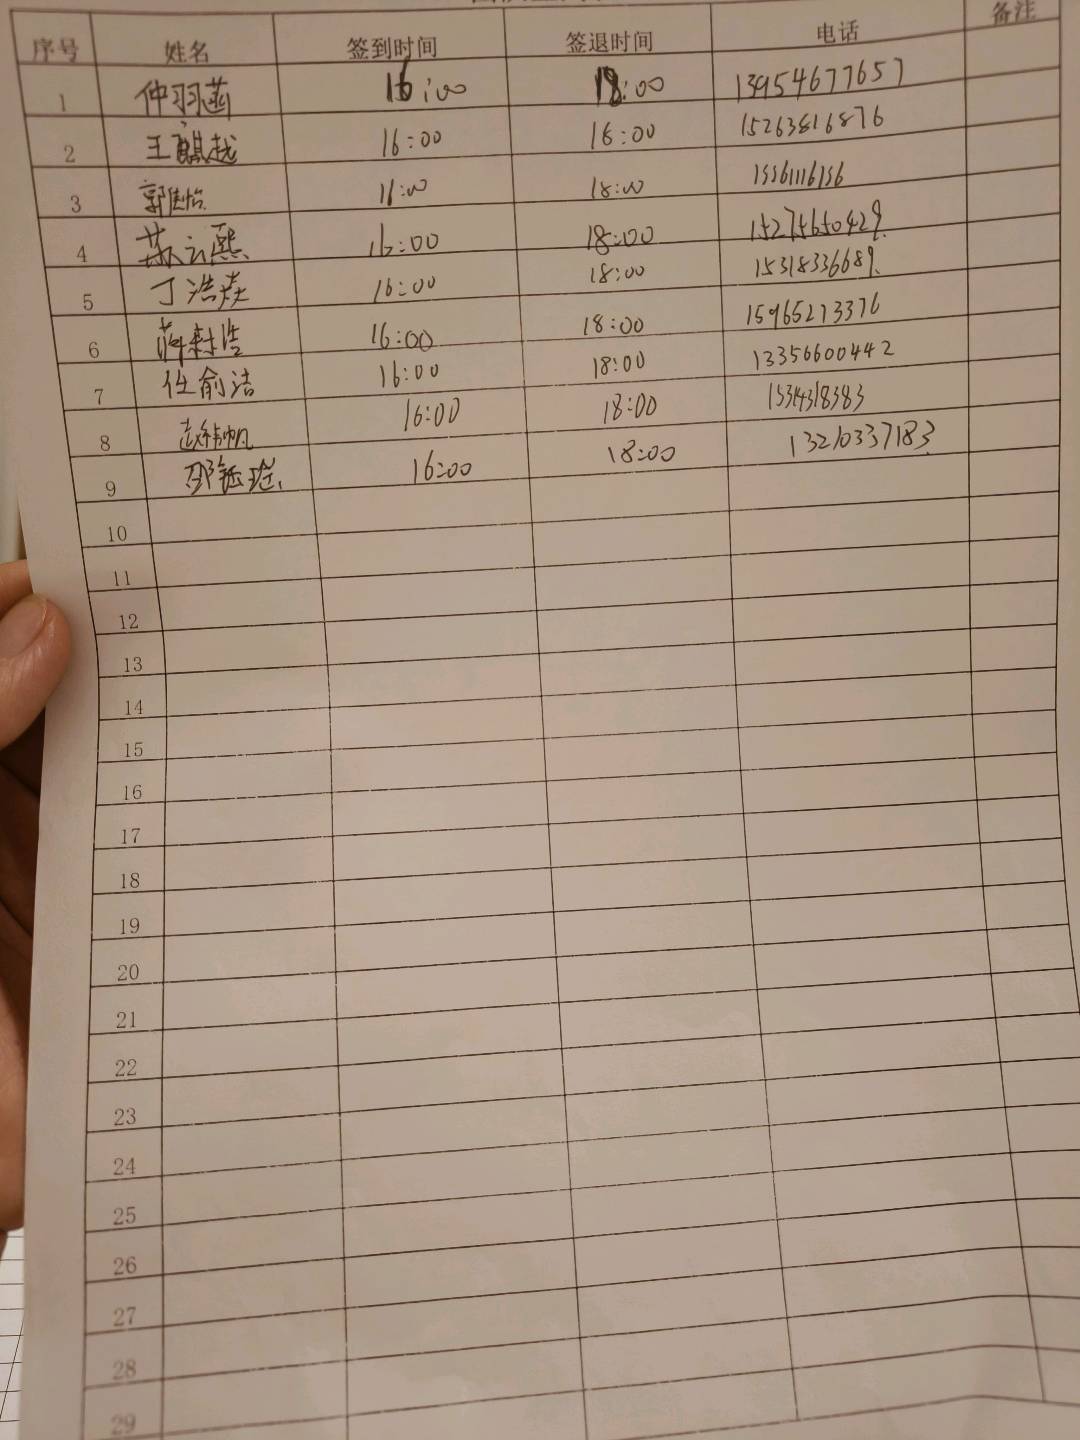 序号 姓名 签到时间 签退时间 电话 备注
1 仲羽菡 16:00 18:00 13954677657
2 王麒越 16:00 18:00 15263816876
3 郭佳怡 16:00 18:00 15561116156
4 苏云熙 16:00 18:00 15275650429
5 丁浩焱 16:00 18:00 15318336689
6 16:00 18:00 15965273376
7 任俞洁 16:00 18:00 13356600442
8 赵祎帆 16:00 18:00 15314318383
9 邵钰瑶 16:00 18:00 13210337183
10
11
12
13
14
15
16
17
18
19
20
21
22
23
24
25
26
27
28
29